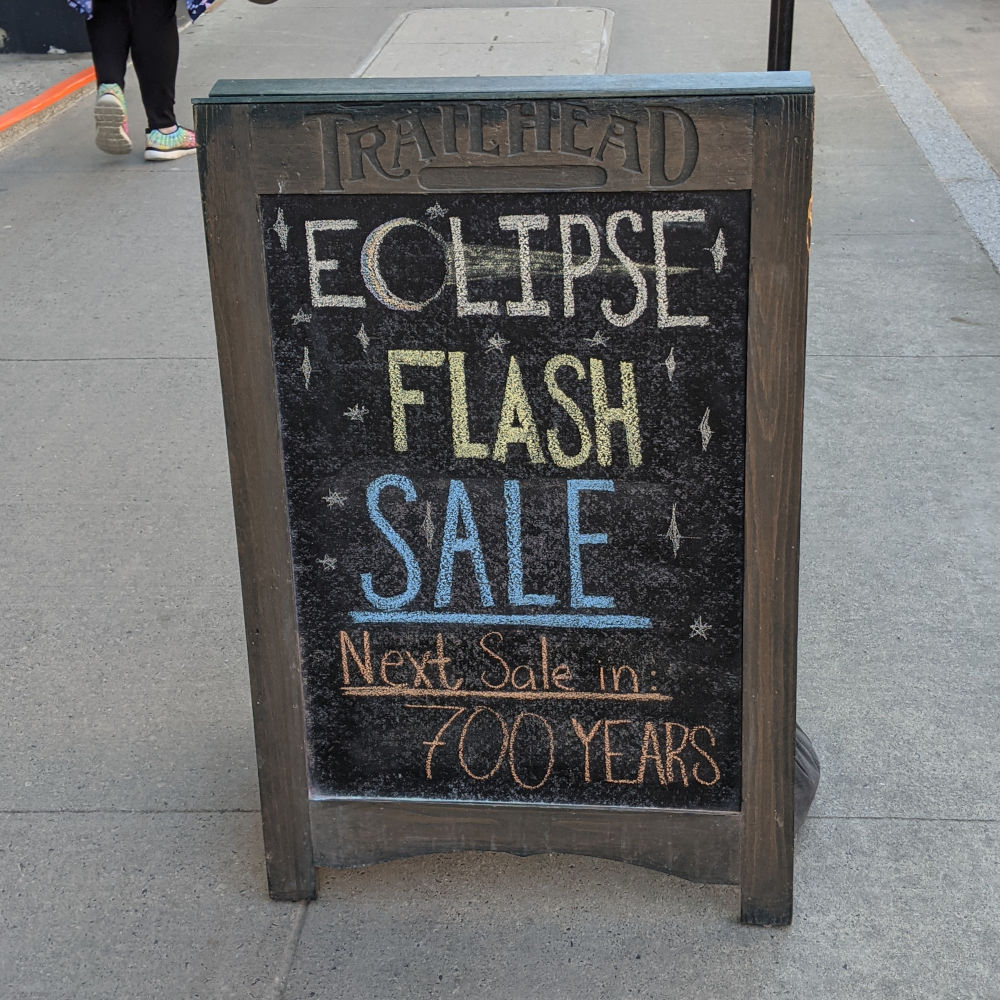 TRAILHEAD
ECLIPSE
FLASH
SALE
Next Sale in:
700 YEARS